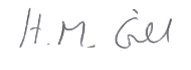 H. M. Gill